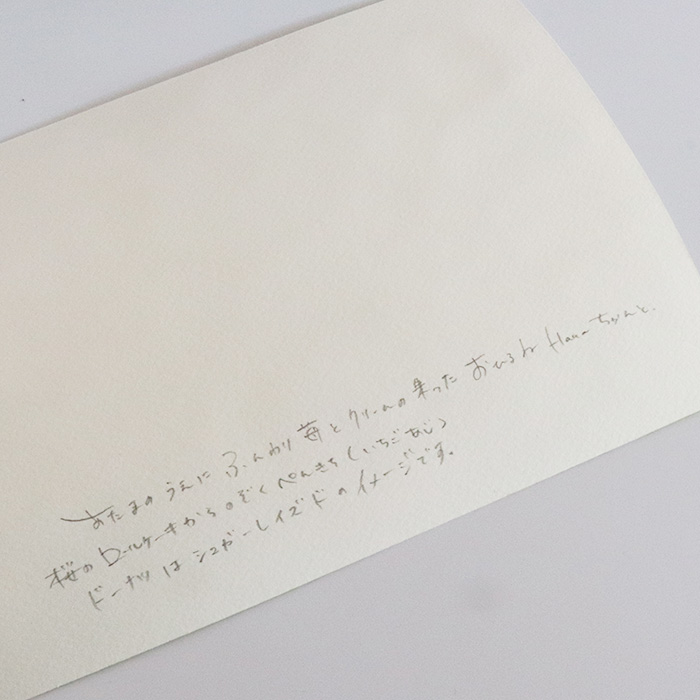 あたまのうえに ふんわり 苺とクリームの乗った おひるね Hanaちゃんと、
桜のロールケーキからのぞく ぺんきち（いちごあじ）
ドーナツは シュガーレイズドのイメージです。